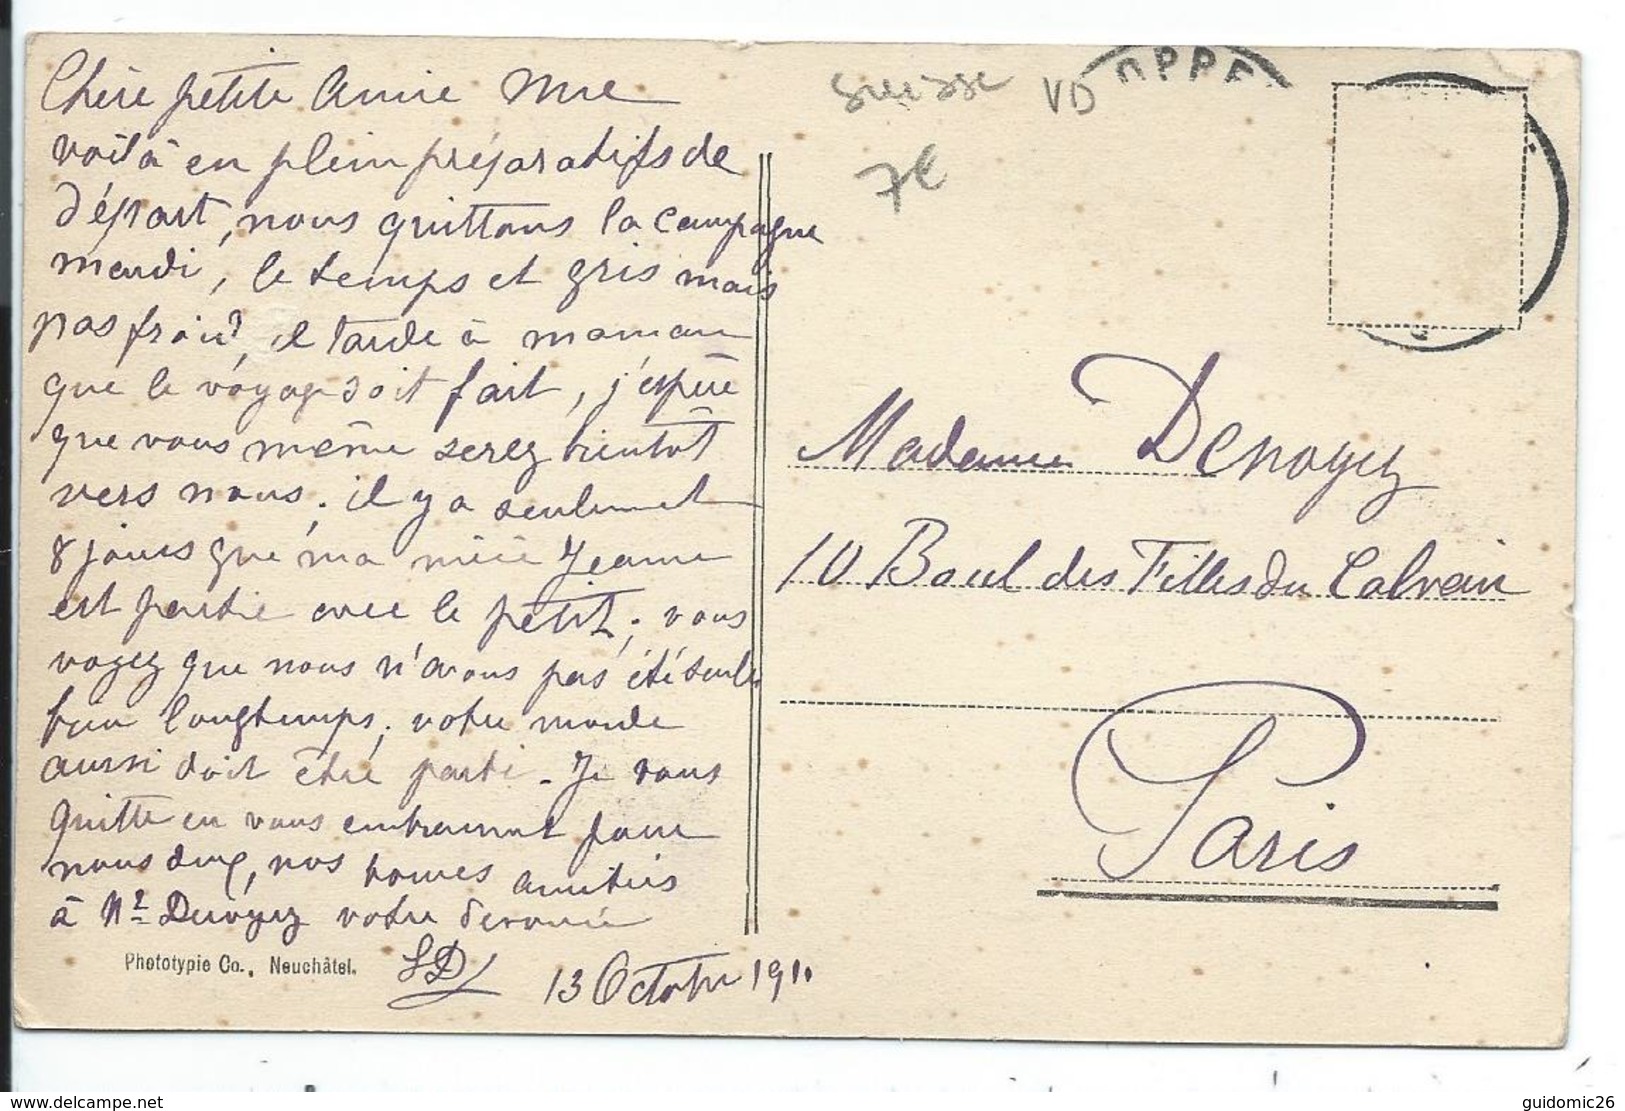 Chère petite Amie Me
voilà en plein préparatifs de
départ, nous quittons la campagne
mardi, le temps et gris mais
pas froid, il tarde à maman
que le voyage soit fait, j'espère
que vous même serez bientôt
vers nous; il y a seulement
8 jours que ma nièce Jeanne
est partie avec le petit; vous
voyez que nous n'avons pas été seules
bien longtemps; votre monde
aussi doit être parti - Je vous
quitte en vous embrassant pour
nous deux, nos bonnes amitiés
à Mr Denoyez votre dévouée
SD
13 Octobre 1910
Phototypie Co., Neuchâtel.
Suisse VD
7€
OPPE
Madame Denoyez
10 Boul des Filles du Calvair
Paris
www.delcampe.net
guidomic26